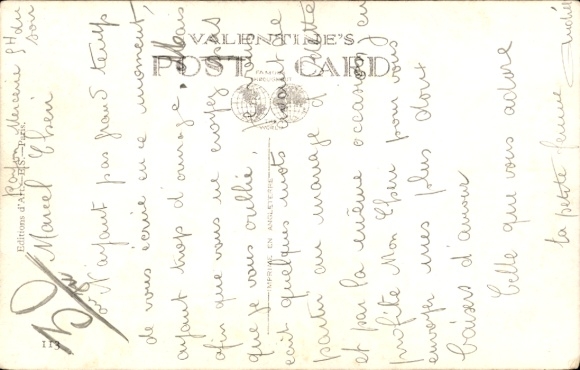 VALENTINE'S
POST CARD
FAMOUS
THROUGHOUT
WORLD
Editions d'Art
Paris.
IMPRIMÉ EN ANGLETERRE
113
Marcel Chéri
N'ayant pas grand temps
de vous écrire en ce moment,
ayant trop d'ouvrage. Mais
afin que vous ne croyez pas
que je vous oublie, je vous
écrit quelques mots avant de
partir au mariage
et par la même occasion j'en
profite Mon Chéri pour vous
envoyer mes plus doux
baisers d'amour
Celle que vous adore
la petite femme